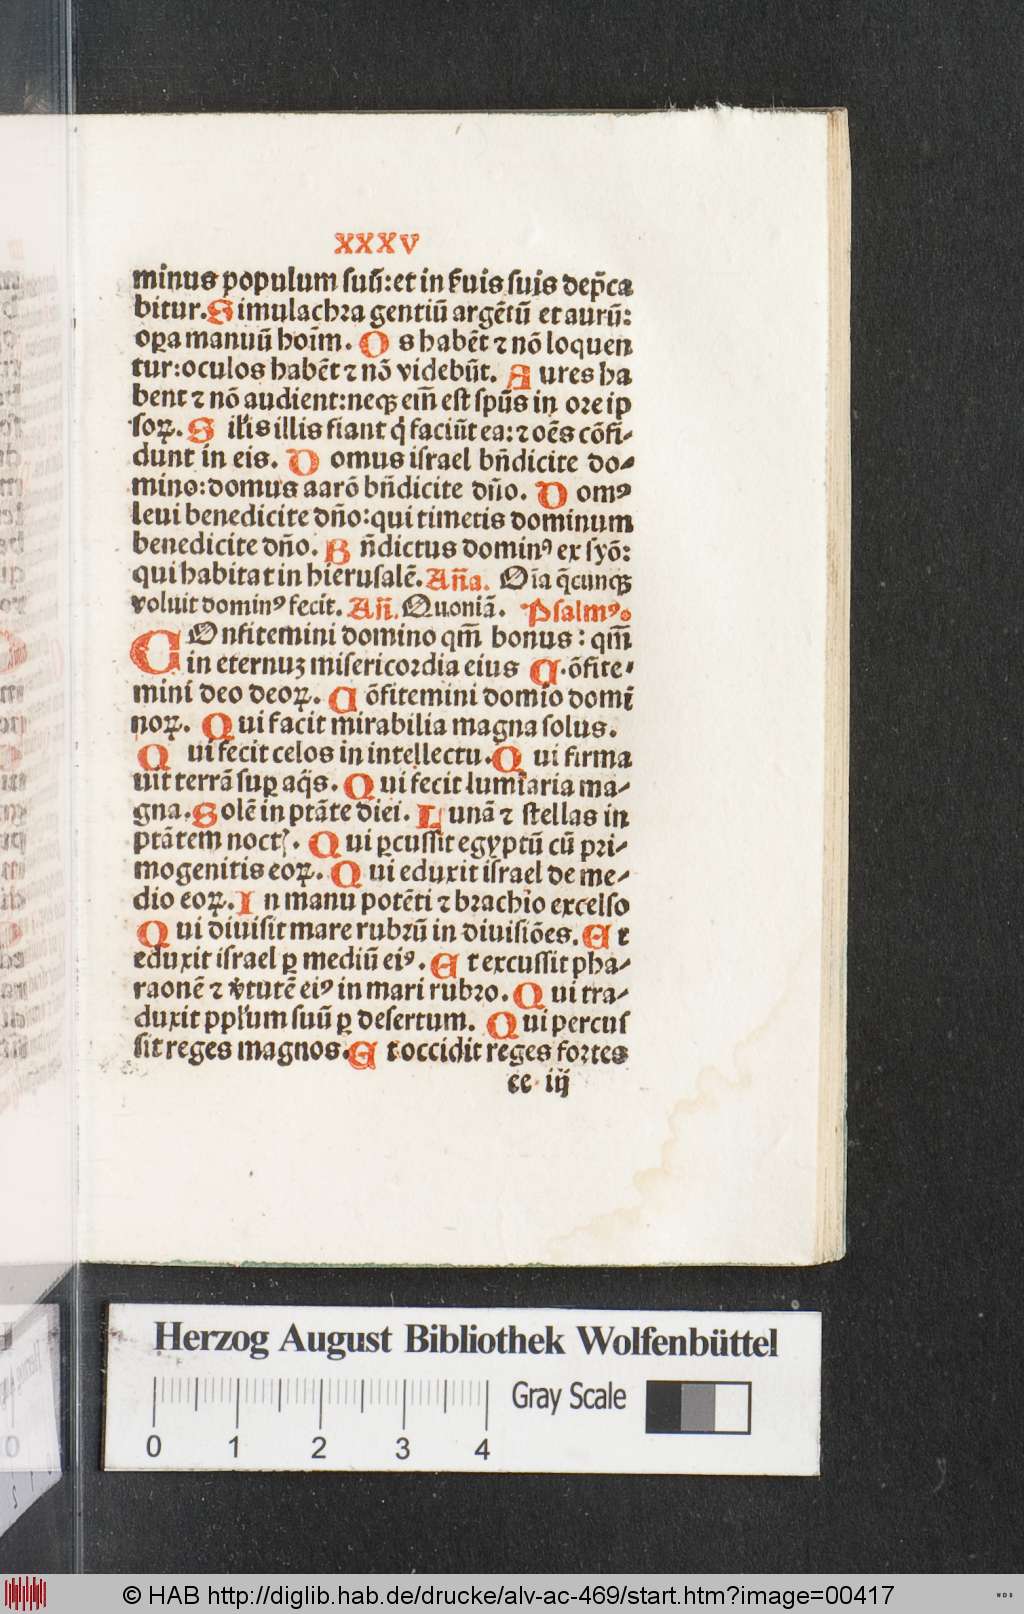 XXXV
minus populum suū:et in ẜuis suis dep̃ca
bitur.Simulachꝛa gentiū argẽtū et aurū:
oꝑa manuū hoĩm. Os habẽt ⁊ nõ loquen
tur:oculos habẽt ⁊ nõ videbũt. Aures ha
bent ⁊ nõ audient:neqꝫ eiñi est spũs in oꝛe ip
soꝝ. Siłis illis fiant q̇ faciũt ea:⁊ oẽs cõfi⸗
dunt in eis. Domus israel bñdicite do⸗
mino:domus aarõ bñdicite dño. Domꝰ
leui benedicite dño:qui timetis dominum
benedicite dño. Bñdictus dominꝰ ex syõ:
qui habitat in hierusalẽ. Aña. Oĩa q̃cunqꝫ
voluit dominꝰ fecit. Añ. Quoniã. Psalmꝰ.
COnfitemini domino qm̃ bonus: qm̃
in eternuꝫ misericoꝛdia eius Cõfite⸗
mini deo deoꝝ. Cõfitemini domĩo domĩ
noꝝ. Qui facit mirabilia magna solus.
Qui fecit celos in intellectu.Qui firma
uit terrã suꝑ aq̃s. Qui fecit lumĩaria ma⸗
gna.Solẽ in ptãte diei. Lunã ⁊ stellas in
ptãtem noctꝭ. Qui ꝑcussit egyptũ cũ pꝛi⸗
mogenitis eoꝝ. Qui eduxit israel de me⸗
dio eoꝝ.In manu potẽti ⁊ bꝛachĩo excelso
Qui diuisit mare rubꝛũ in diuisiões.Et
eduxit israel ꝑ mediũ eiꝰ. Et excussit pha⸗
raonẽ ⁊ v̓tutẽ eiꝰ in mari rubꝛo. Qui tra⸗
duxit ppłum suũ ꝑ desertum. Qui percus
sit reges magnos.Et occidit reges foꝛtes
ee iij
Herzog August Bibliothek Wolfenbüttel
Gray Scale
0 1 2 3 4
© HAB http://diglib.hab.de/drucke/alv-ac-469/start.htm?image=00417